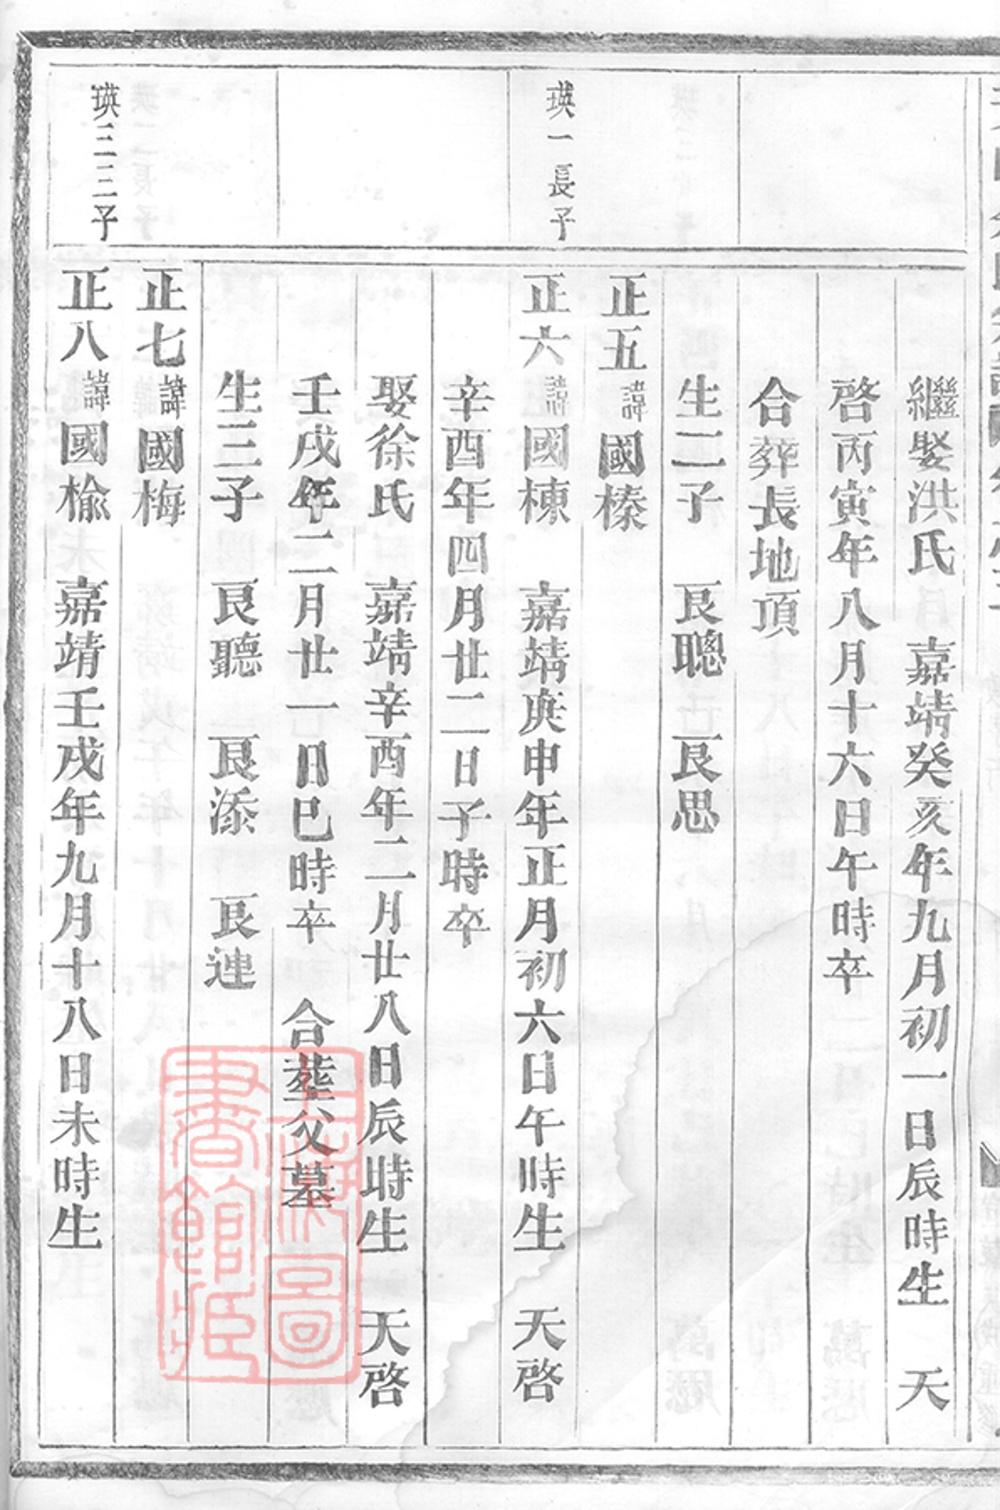 繼娶洪氏　嘉靖癸亥年九月初一日辰時生　天
啓丙寅年八月十六日午時卒
合葬長地頂
生二子　艮聰　艮思
正五諱國榛
瑛一長子
正六諱國棟　嘉靖庚申年正月初六日午時生　天啓
辛酉年四月廿二日子時卒
娶徐氏　嘉靖辛酉年二月廿八日辰時生　天啓
壬戌年二月廿一日巳時卒　合塟父墓
生三子　艮聽　艮添　艮連
正七諱國梅
瑛三三子
正八諱國榆　嘉靖壬戌年九月十八日未時生
圖書館